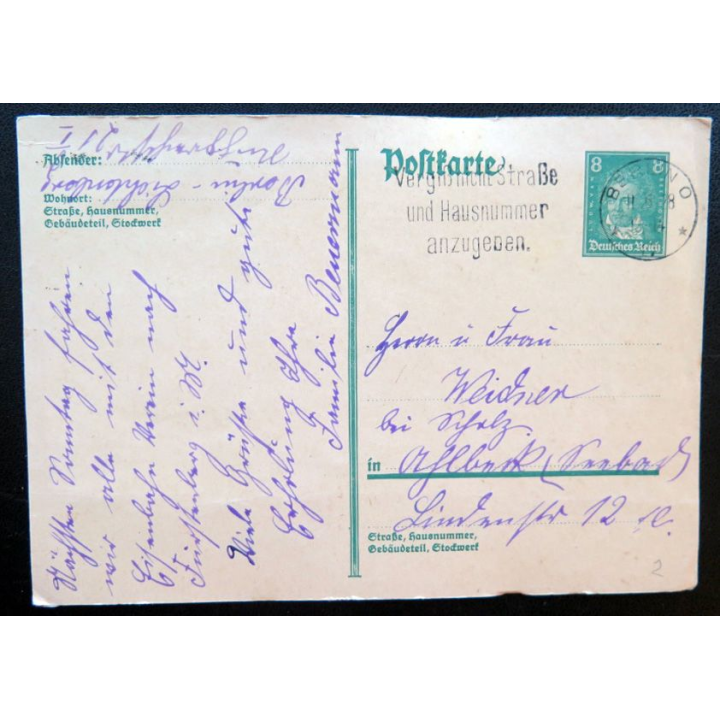 Absender:
Berlin-Lichtenberg
Wohnort:
Straße, Hausnummer,
Gebäudeteil, Stockwerk
Nächsten Sonntag fahren
wir alle mit den
Eisenbahn Verein nach
Fürstenberg i. M.
Viele Grüße und gute
Erholung Ihre
Familie Beuermann
Postkarte
Vergiß nicht Straße
und Hausnummer
anzugeben.
8 8
Deutsches Reich
BERLIN O
Herrn u Frau
Weidner
bei Scholz
in Ahlbeck (Seebad)
Lindenstr 12
Straße, Hausnummer,
Gebäudeteil, Stockwerk
2